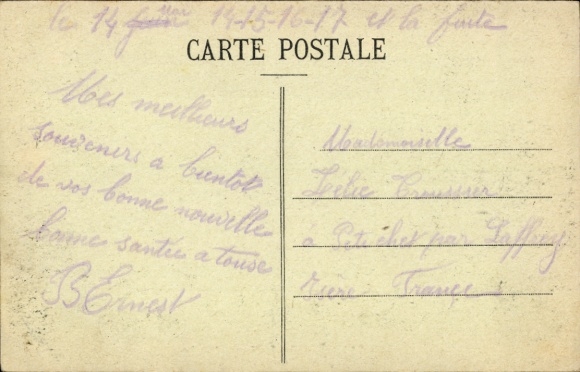 le 14 14-15-16-17 et la suite
CARTE POSTALE
Mes meilleurs
souvenirs a bientot
de vos bonne nouvelle
bonne santée a touse
B Ernest
Mademoiselle
à Petichet par Laffrey
Isère France